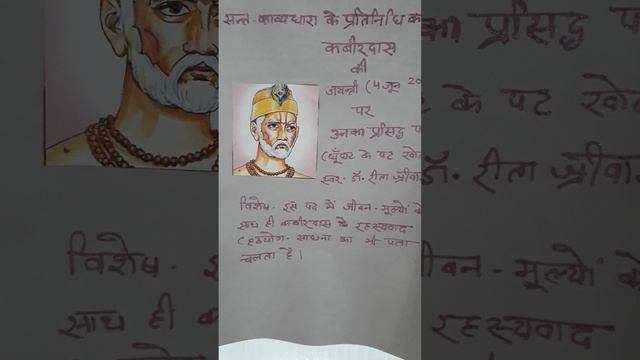 सन्त-काव्यधारा के प्रतिनिधि
कबीरदास
की
जयन्ती (4 जून 20
पर
उनका प्रसिद्ध प
(घूँघट के पट खो
स्वर- डॉ. रीता श्रीवा
विशेष- इस पद में जीवन-मूल्यों के
साथ ही कबीरदास के रहस्यवाद
(हठयोग-साधना का भी पता
चलता है।
का प्रसिद्ध प
के पट खो
डॉ. रीता श्रीवा
विशेष-
जीवन-मूल्यों के
साथ ही
रहस्यवाद